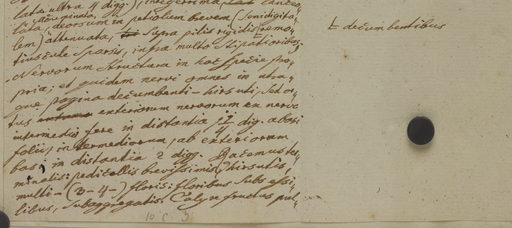 late ultra 4 digg.), integerrima, lanceo-
lata, acuminata, deorsum in petiolum brevem (semidigita-
lem) attenuata, supra pilis rigidis rumo-
tiuscule sparsis, infra multo stipatioribus
Nervorum structura in hac specie pro-
pria; et quidem nervi omnes in utra-
que pagina decumbenti-hirsuti; ortus
exteriorum nervorum ex nervo
intermedio fere in distantia digg. a basi
folii, intermediorum, ab exteriorum
basi in distantia 2 digg. Racemus ter-
minalis: pedicellis brevissimis, hirsutis,
multi-(3-4-)floris: floribus subsessi-
libus, subaggregatis. Calyx fructus pul-
t decumbentibus
10. C. 3.